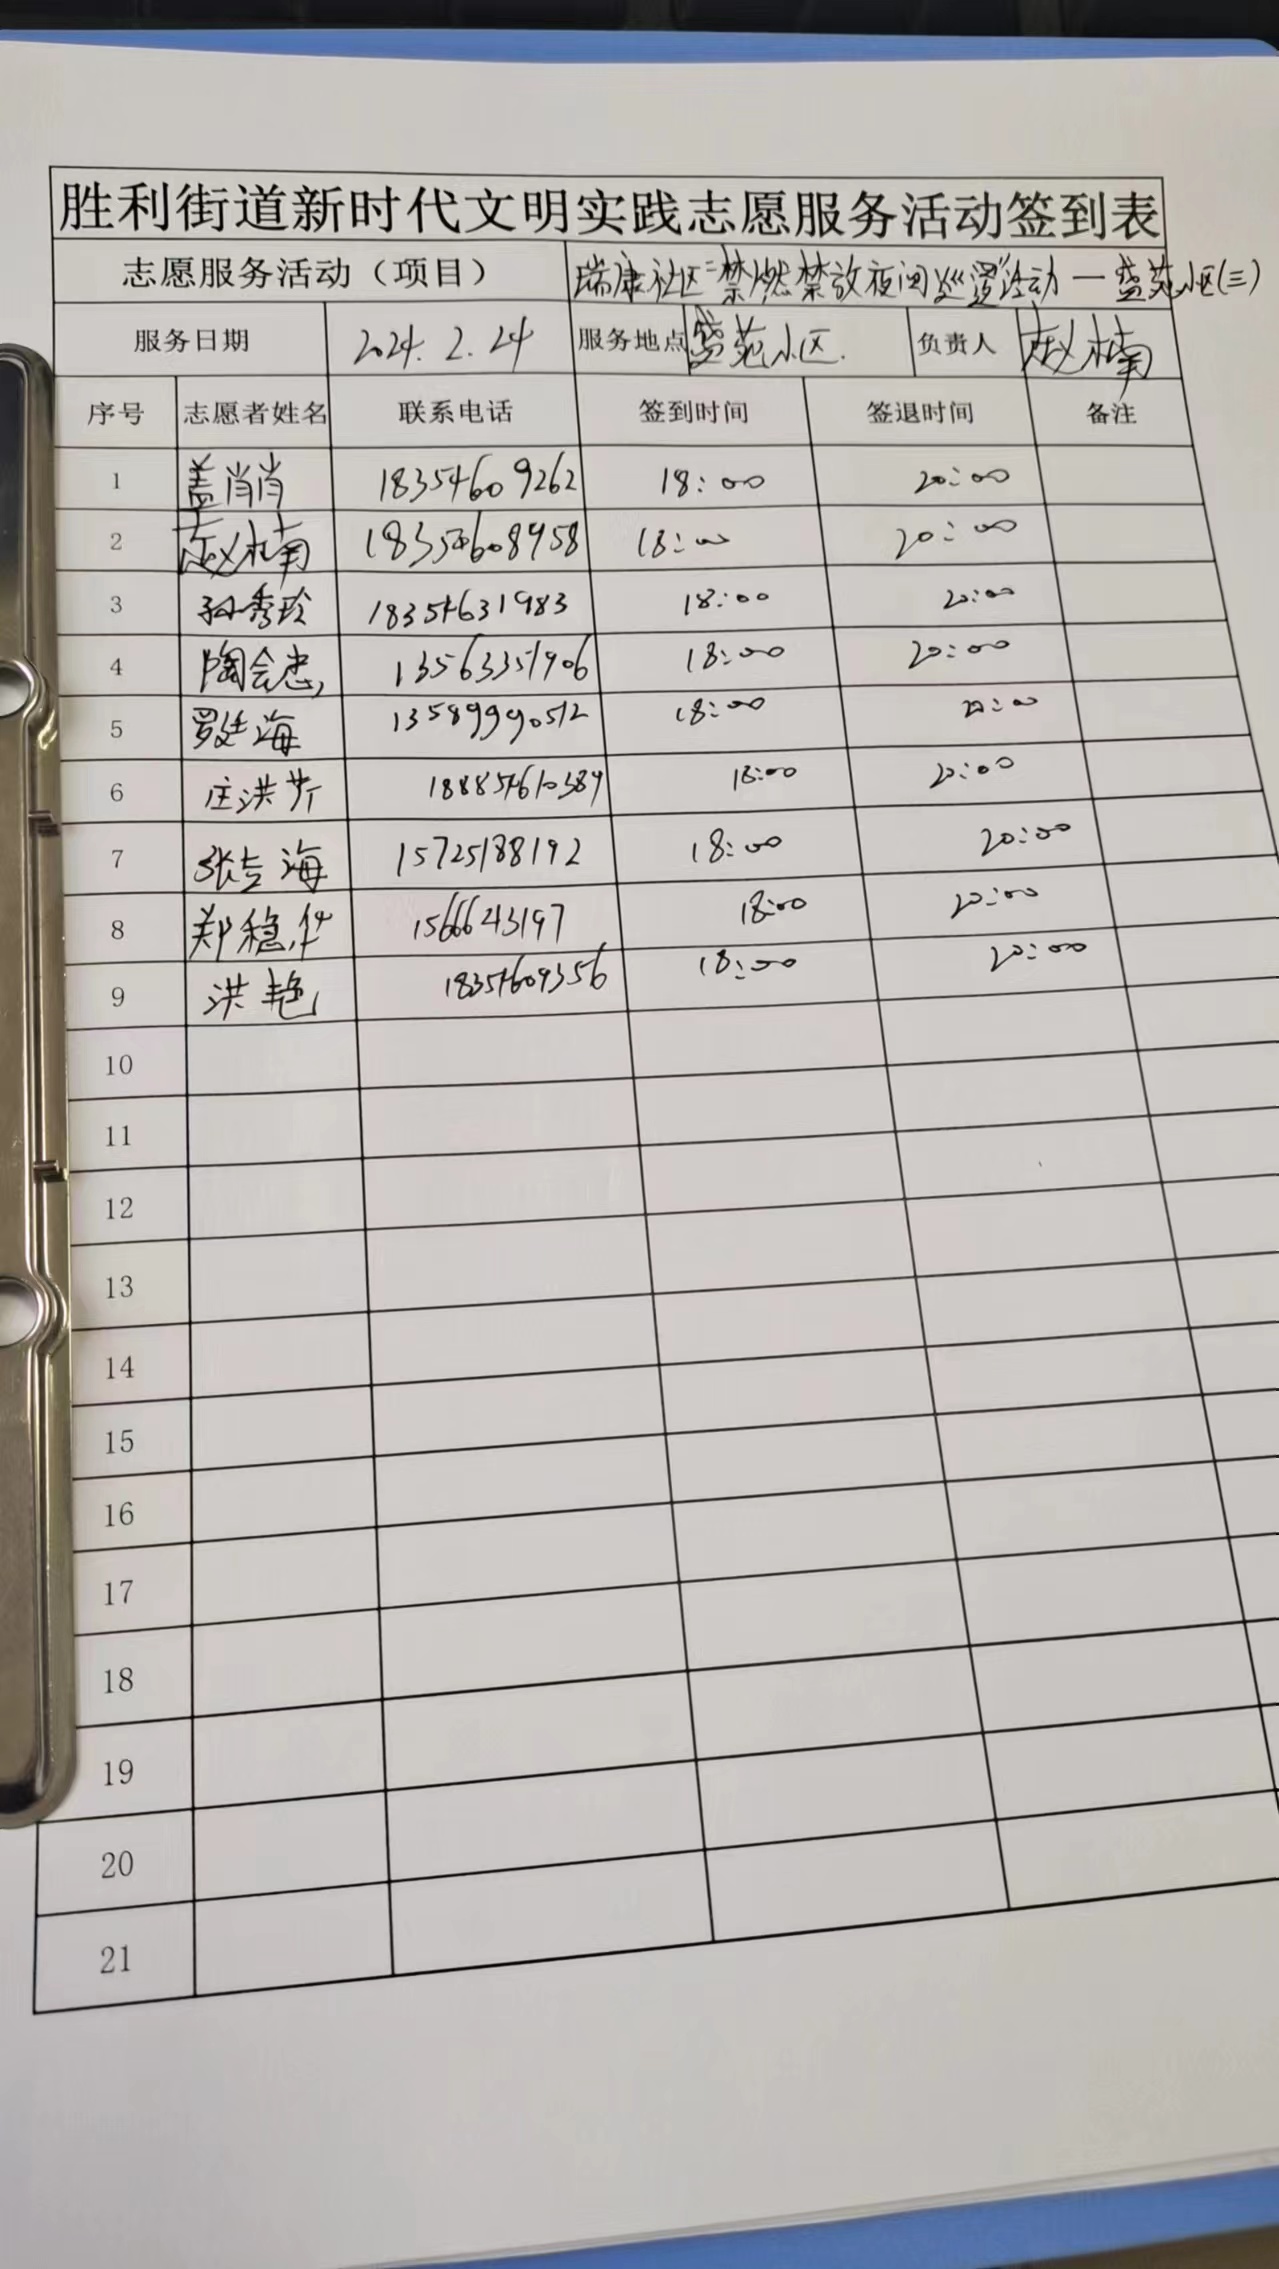 胜利街道新时代文明实践志愿服务活动签到表
志愿服务活动（项目） 瑞康社区"禁燃禁放夜间巡逻"活动—盛苑小区(三)
服务日期 2024.2.24 服务地点 盛苑小区. 负责人 赵楠
序号 志愿者姓名 联系电话 签到时间 签退时间 备注
1 盖肖肖 18354609262 18:00 20:00
2 赵楠 18354608958 18:00 20:00
3 孙秀玲 18354631983 18:00 20:00
4 陶会忠 13563351906 18:00 20:00
5 罗廷海 13589990512 18:00 20:00
6 庄洪芹 18:00 20:00
7 张吉海 15725188192 18:00 20:00
8 郑稳华 18:00 20:00
9 洪艳 18354609356 18:00 20:00
10
11
12
13
14
15
16
17
18
19
20
21